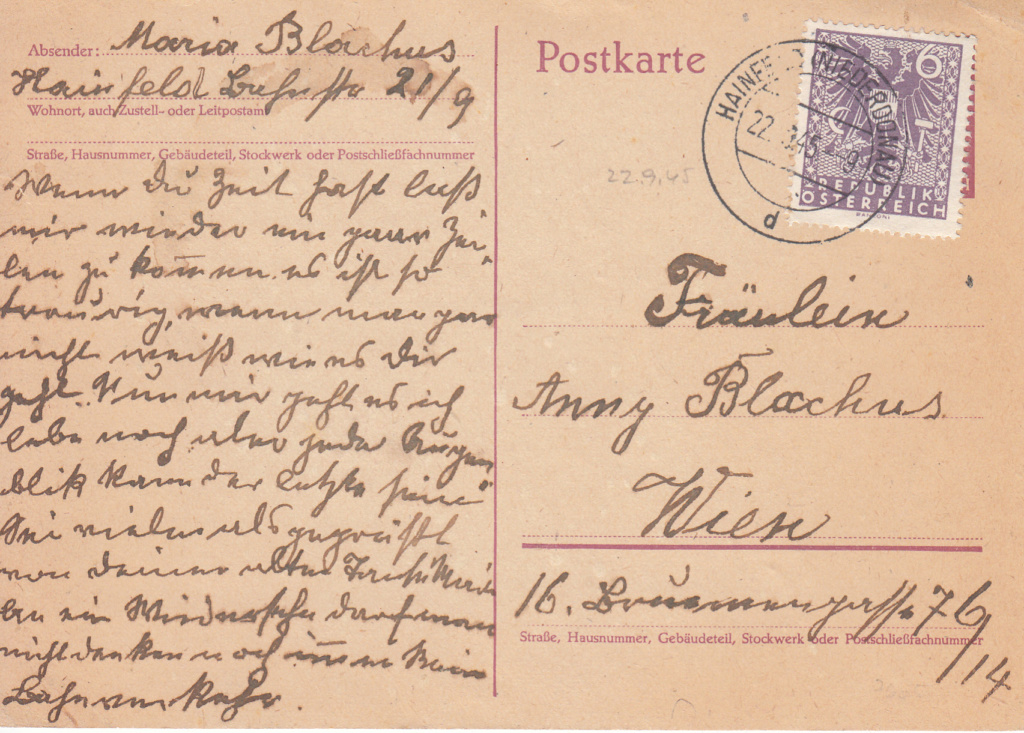 Absender: Maria Blachus
Hainfeld Bahnstr 21/9
Wohnort, auch Zustell- oder Leitpostamt
Straße, Hausnummer, Gebäudeteil, Stockwerk oder Postschließfachnummer
Wenn du Zeit hast laß
mir wieder ein paar Zei-
len zu kommen es ist so
traurig, wenn man gar
nicht weiß wie es dir
geht. Nun mir geht es ich
lebe noch aber jeder Augen
blik kann der letzte sein
Sei vielmals gegrüßt
von deiner alten Tante Marie
an ein Wiedersehn darf man
nicht denken noch immer kein
Bahnverkehr.
Postkarte
HAINFELD (NIEDERDONAU)
22.9.45
d
6
REPUBLIK
ÖSTERREICH
22.9.45
Fräulein
Anny Blachus
Wien
16. Brunnengasse 76/14
Straße, Hausnummer, Gebäudeteil, Stockwerk oder Postschließfachnummer